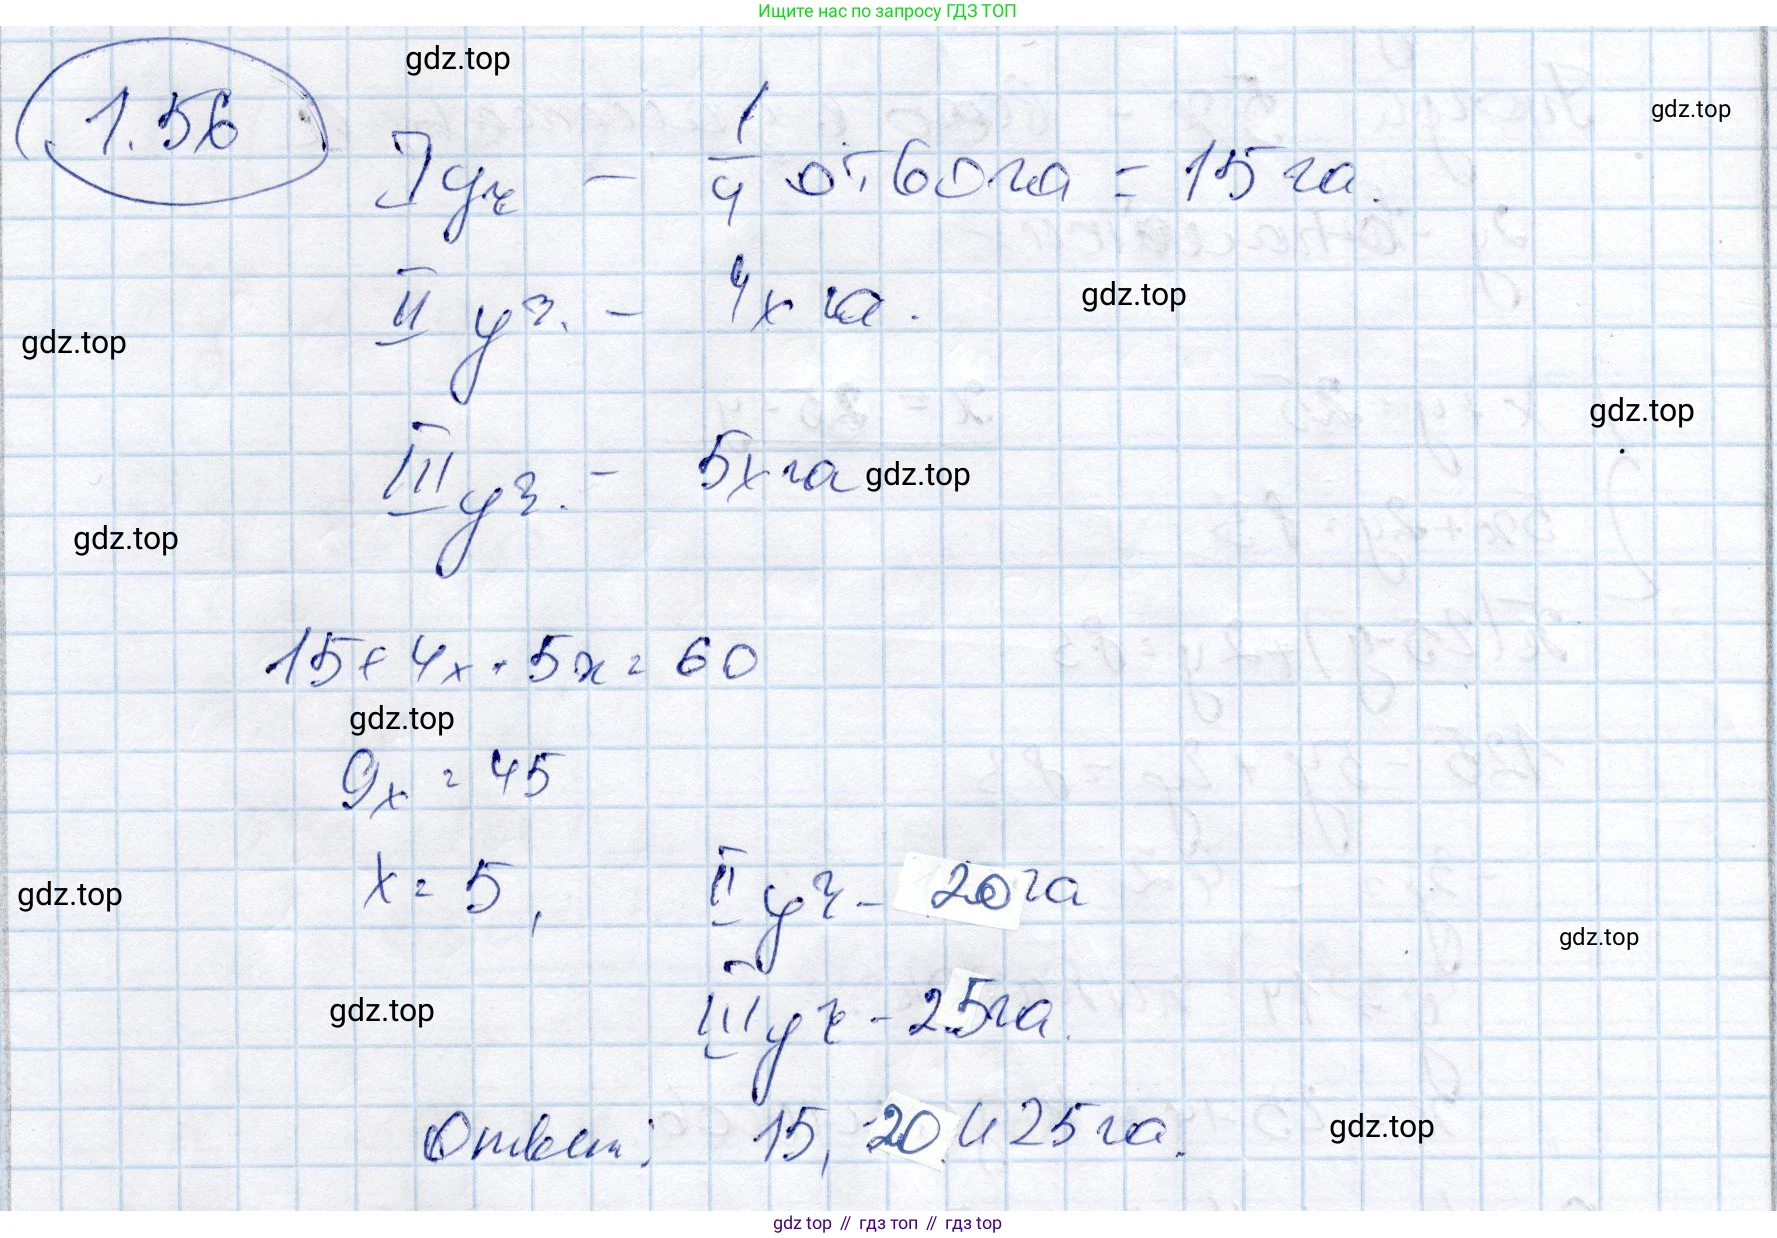 Ищите нас по запросу ГДЗ ТОП
gdz.top
gdz.top
1.56
I уч — 1/4 от 60 га = 15 га.
II уч. — 4x га.
gdz.top
gdz.top
gdz.top
III уч. — 5x га
gdz.top
gdz.top
15 + 4x + 5x = 60
gdz.top
9x = 45
x = 5,
II уч — 20 га
gdz.top
gdz.top
III уч — 25 га.
gdz.top
Ответ: 15, 20 и 25 га.
gdz.top
gdz top // гдз топ // гдз top